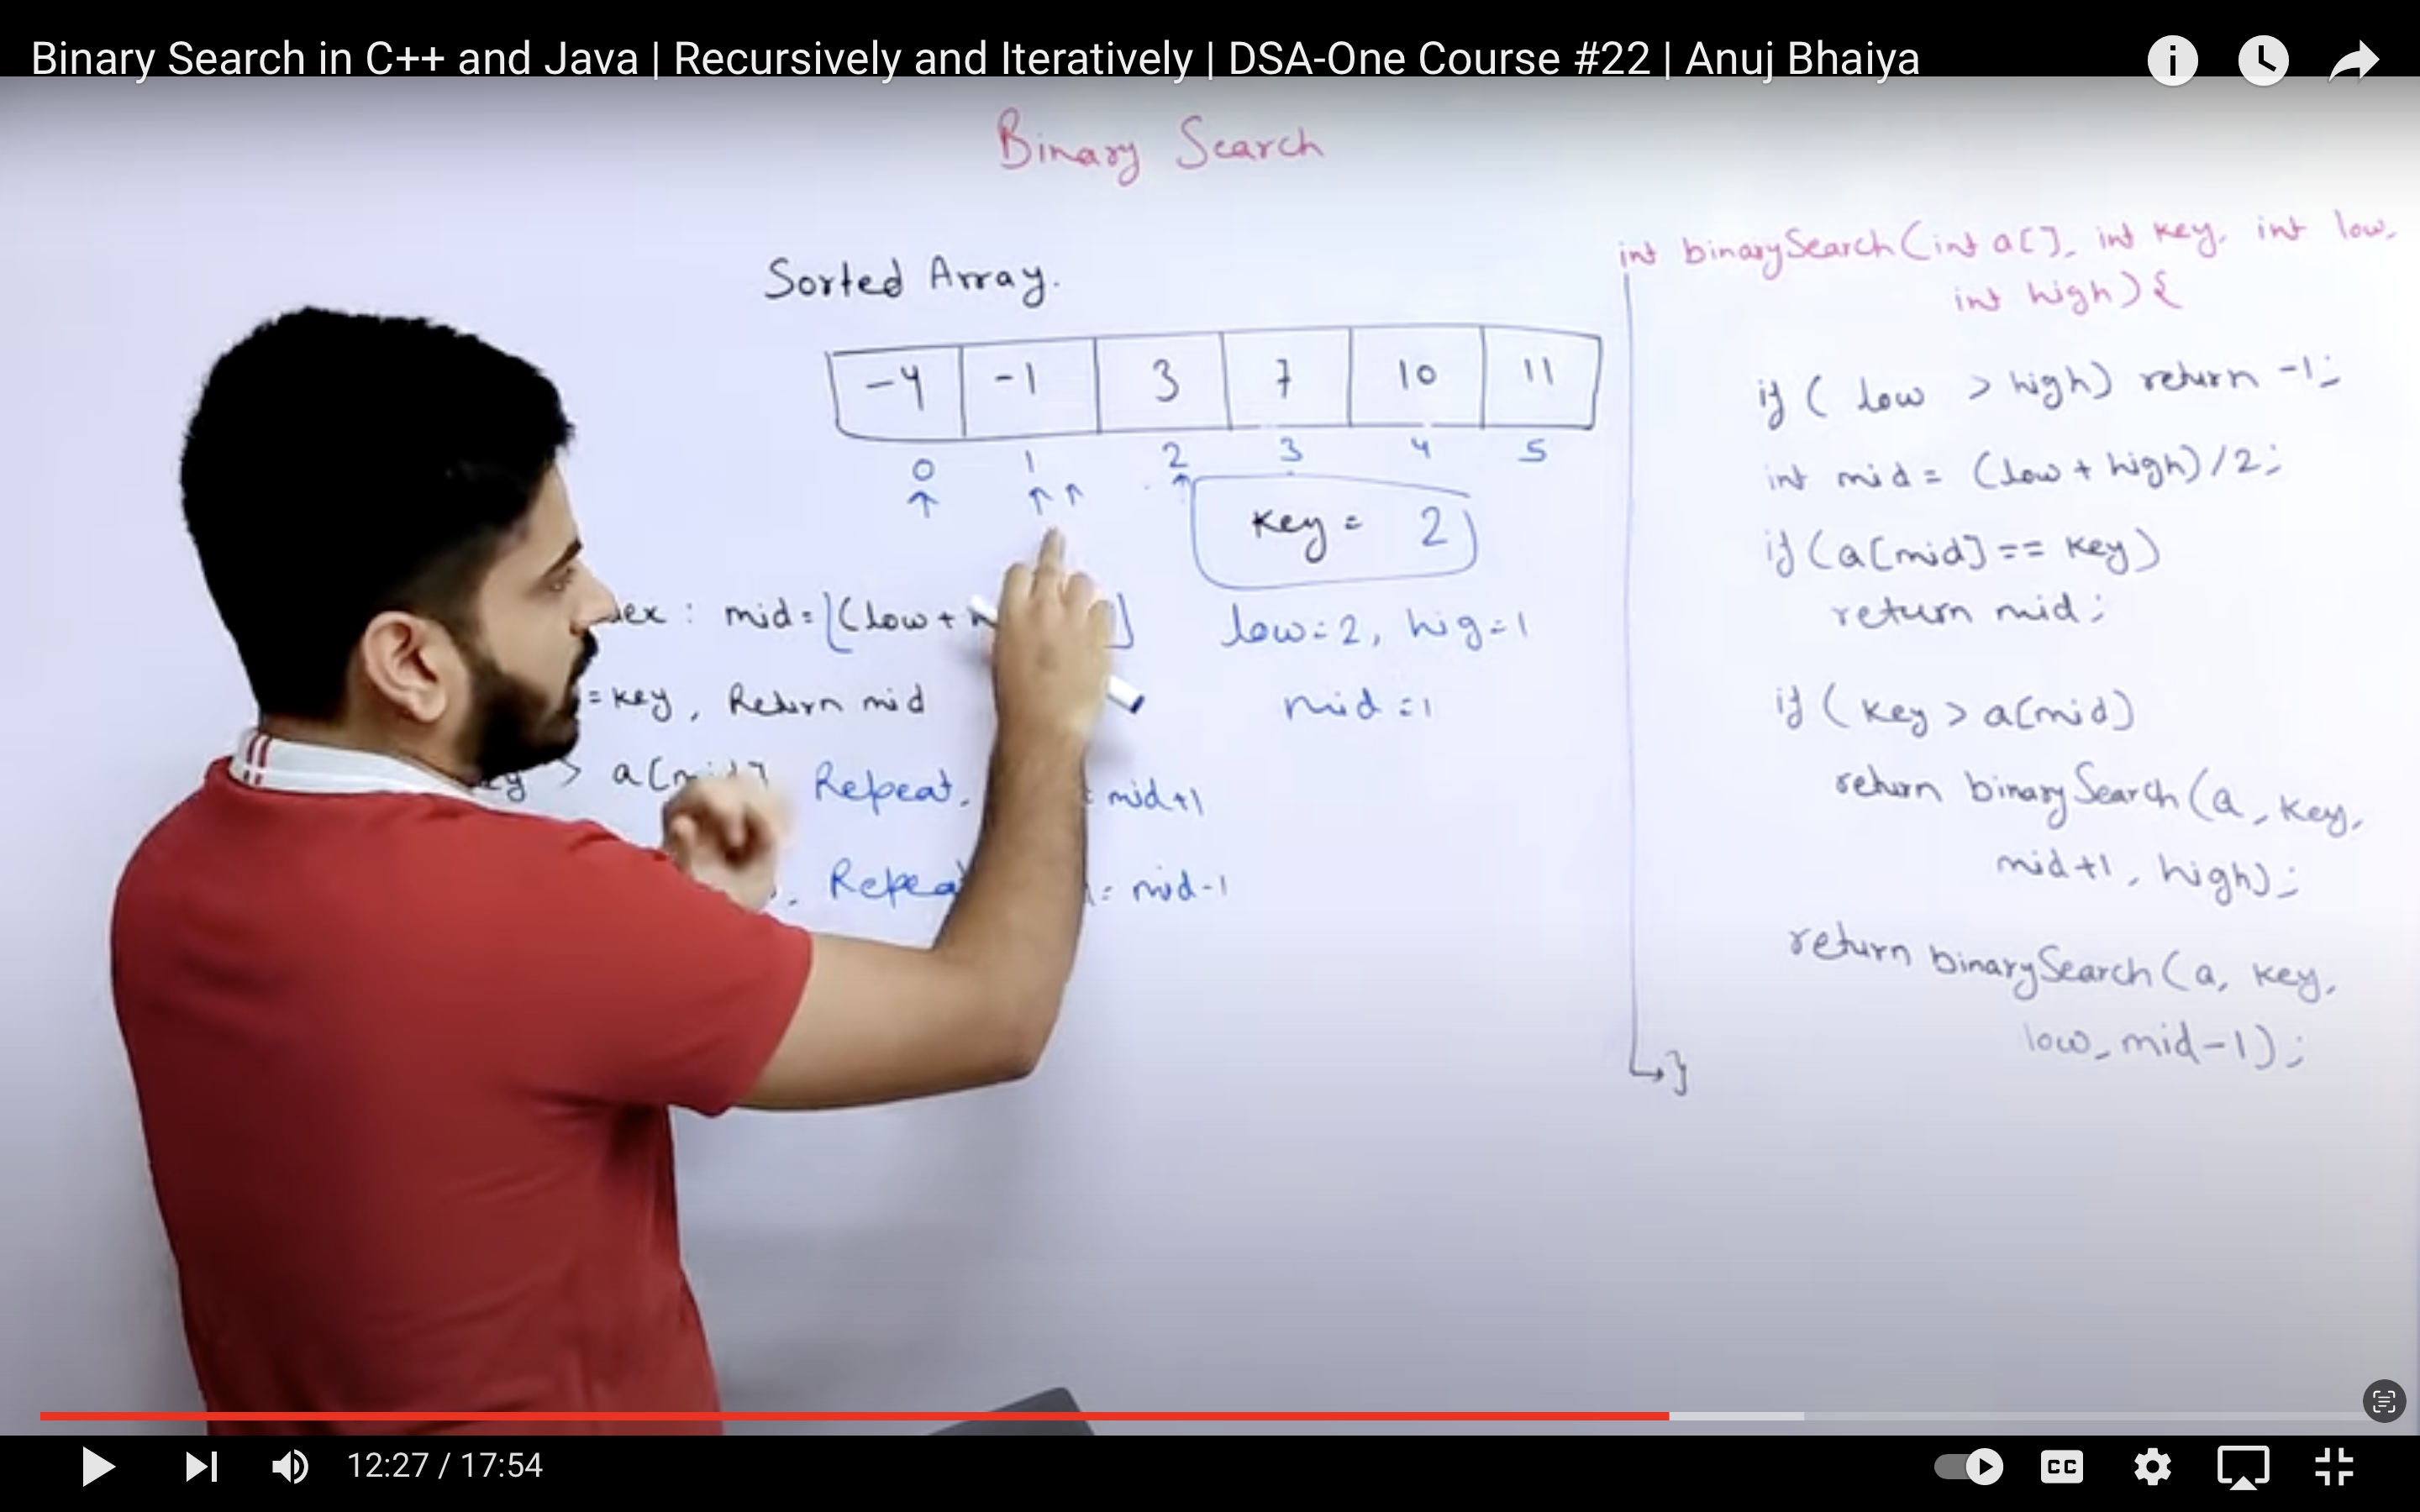 Binary Search in C++ and Java | Recursively and Iteratively | DSA-One Course #22 | Anuj Bhaiya
Binary Search
Sorted Array.
-4 -1 3 7 10 11
0 1 2 3 4 5
↑ ↑ ↑ ↑
Key = 2
: mid = ⌊(low +
low = 2, hig = 1
= key, Return mid
mid = 1
> Repeat, mid+1
Repeat = mid-1
int binarySearch(int a[], int key, int low,
int high) {
if ( low > high) return -1;
int mid = (low + high)/2;
if (a[mid] == key)
return mid;
if ( key > a[mid)
return binarySearch(a, key,
mid+1, high);
return binarySearch(a, key,
low, mid-1);
}
12:27 / 17:54
CC